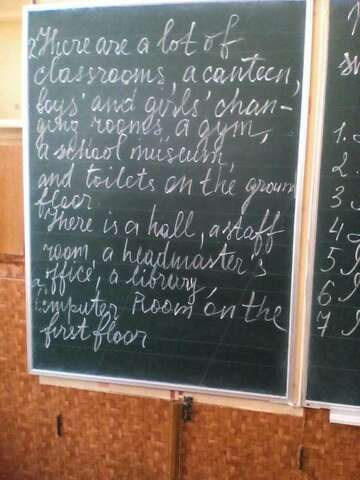 2 There are a lot of
classrooms, a canteen,
boys' and girls' chan-
ging rooms, a gym,
a school museum,
and toilets on the groun
floor.
There is a hall, a staff
room, a headmaster's
office, a library,
computer Room on the
first floor
1.
2.
3
4
5
6
7